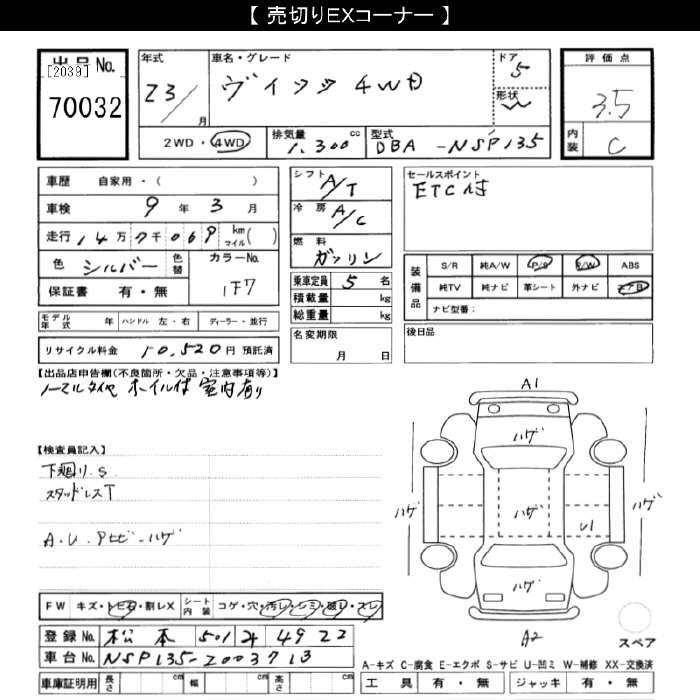 【 売切りEXコーナー 】
出品No.
[2039]
70032
年式
23/
月
車名・グレード
ヴィッツ 4WD
ドア
5
形状
W
2WD・4WD
排気量 1.300 cc
型式 DBA -NSP135
評価点
3.5
内装 C
車歴 自家用・( )
車検 9年 3月
走行 14万7千069 km マイル( )
色 シルバー 色替
カラーNo. 1F7
保証書 有・無
モデル年式 年 ハンドル 左・右 ディーラー・並行
リサイクル料金 10,520円 預託済
シフト A/T
冷房 A/C
燃料 ガソリン
乗車定員 5 名
積載量 kg
総重量 kg
名変期限
月 日
セールスポイント
ETC付
装備品
S/R 純A/W P/S P/W ABS
純TV 純ナビ 革シート 外ナビ エアB
ナビ型番:
後日品
【出品店申告欄(不良箇所・欠品・注意事項等)】
ノーマルタイヤ ホイル付 室内有り
【検査員記入】
下廻り.S
スタッドレスT
A.U.Pサビ-ハゲ
A1
ハゲ
ハゲ
ハゲ
ハゲ
U1
ハゲ
A2
スペア
FW キズ・トビ石・割レX シート内装 コゲ・穴・汚レ・シミ・破レ・スレ
登録No. 松本 501 4922
車台No. NSP135-2003713
車庫証明用 長さ cm 幅 cm 高さ cm
A-キズ C-腐食 E-エクボ S-サビ U-凹ミ W-補修 XX-交換済
工具 有・無 ジャッキ 有・無